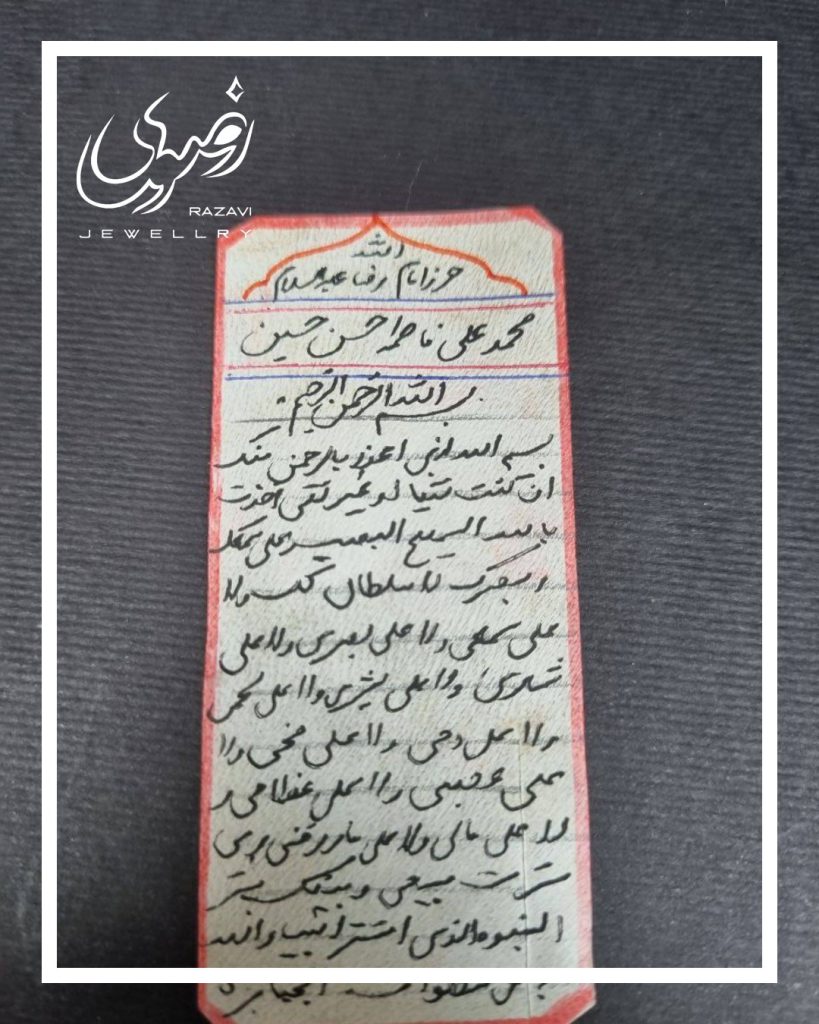 رضوی
RAZAVI
JEWELLRY
الله
حرز امام رضا علیه السلام
محمد علی فاطمه حسن حسین
بسم الله الرحمن الرحیم
بسم الله انی اعوذ بالرحمن منک
ان کنت تقیا او غیر تقی اخذت
بالله السمیع البصیر علی سمعک
و بصرک لا سلطان لک ولا
علی سمعی ولا علی بصری ولا علی
شعری ولا علی بشری ولا علی لحمی
ولا علی دمی ولا علی مخی ولا
علی عصبی ولا علی عظامی و
لا علی مالی ولا علی ما رزقنی ربی
سترت بینی و بینک بستر
النبوه الذی استتر انبیاء الله